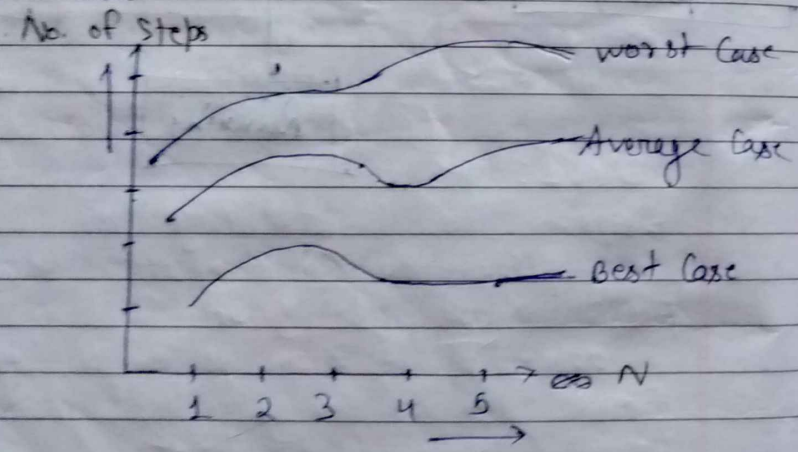 No. of Steps
Worst Case
Average Case
Best Case
N
1 2 3 4 5